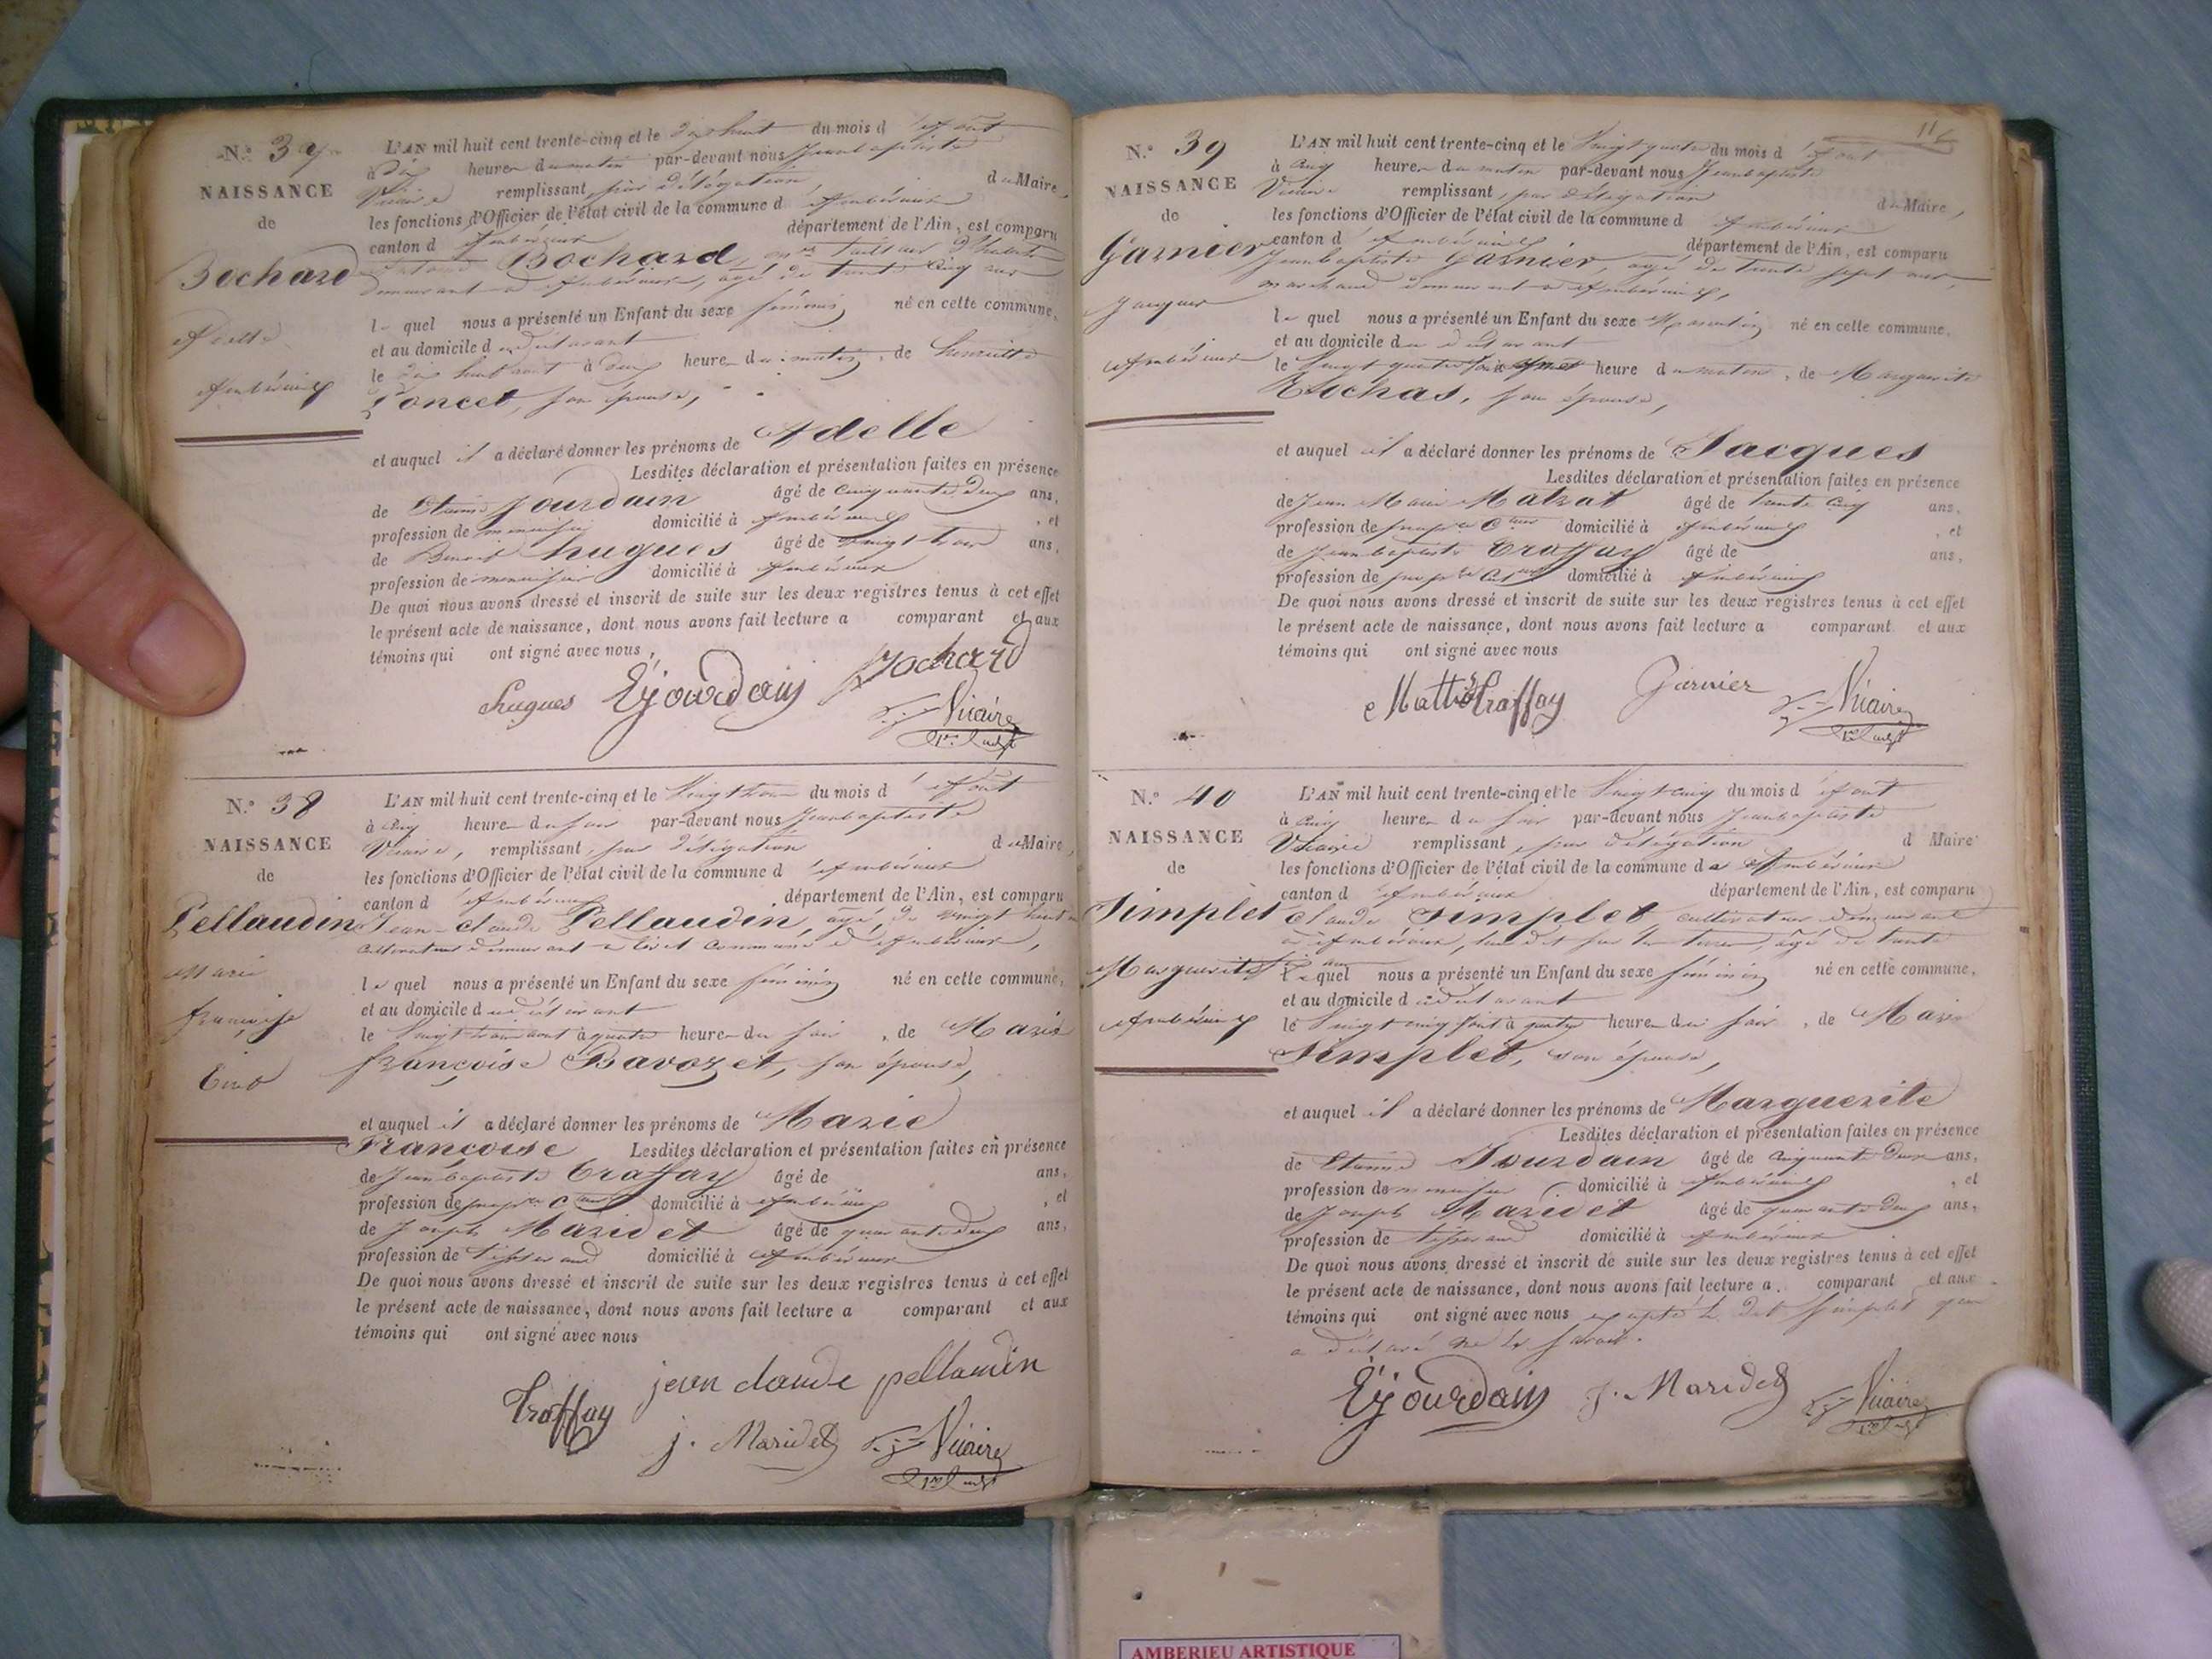 N.º 37
NAISSANCE
de
Bochard
Adelle
Ambérieux
L'AN mil huit cent trente-cinq et le dix huit du mois d'Aout
à dix heures du matin par-devant nous Jeanbaptiste
Vicaire remplissant, par délégation, du Maire,
les fonctions d'Officier de l'état civil de la commune d'Ambérieux
canton d'Ambérieux département de l'Ain, est comparu
Bochard, tailleur d'habits
demeurant à Ambérieux, agé de trente cinq ans
lequel nous a présenté un Enfant du sexe féminin né en cette commune,
et au domicile du déclarant
le dix huit aout à deux heures du matin, de henriette
Poncet, son épouse,
et auquel il a déclaré donner les prénoms de Adelle
Lesdites déclaration et présentation faites en présence
de Etienne Jourdain âgé de cinquante deux ans,
profession de menuisier domicilié à Ambérieux, et
de Benoit hugues âgé de vingt trois ans,
profession de menuisier domicilié à Ambérieux
De quoi nous avons dressé et inscrit de suite sur les deux registres tenus à cet effet
le présent acte de naissance, dont nous avons fait lecture a comparant et aux
témoins qui ont signé avec nous,
hugues Ejourdain Bochard
Vicaire
N.º 38
NAISSANCE
de
Pellaudin
Marie
françoise
L'AN mil huit cent trente-cinq et le Vingt trois du mois d'Aout
à cinq heures du soir par-devant nous Jeanbaptiste
Vicaire, remplissant, par délégation du Maire,
les fonctions d'Officier de l'état civil de la commune d'Ambérieux
canton d'Ambérieux, département de l'Ain, est comparu
Jean-claude Pellaudin, agé de vingt huit
cultivateur demeurant à commune d'Ambérieux,
lequel nous a présenté un Enfant du sexe féminin né en cette commune,
et au domicile du déclarant
le Vingt trois aout à quatre heures du soir, de Marie
françoise Bavozet, son épouse,
et auquel il a déclaré donner les prénoms de Marie
Francoise Lesdites déclaration et présentation faites en présence
de Jeanbaptiste Traffay âgé de ans,
profession de domicilié à Ambérieux, et
de Joseph Maridet âgé de quarante deux ans,
profession de tisserand domicilié à Ambérieux
De quoi nous avons dressé et inscrit de suite sur les deux registres tenus à cet effet
le présent acte de naissance, dont nous avons fait lecture a comparant et aux
témoins qui ont signé avec nous
Traffay jean claude pellaudin
j. Maridet Vicaire
N.º 39
NAISSANCE
de
Garnier
Jacques
Ambérieux
L'AN mil huit cent trente-cinq et le Vingt quatre du mois d'Aout
à cinq heures du matin par-devant nous Jeanbaptiste
Vicaire remplissant, par délégation du Maire,
les fonctions d'Officier de l'état civil de la commune d'Ambérieux
canton d'Ambérieux département de l'Ain, est comparu
Jeanbaptiste Garnier, agé de trente sept ans,
marchand demeurant à Ambérieux,
lequel nous a présenté un Enfant du sexe Masculin né en cette commune,
et au domicile du déclarant
le Vingt quatre heure du matin, de Marguerite
Rochas, son épouse,
et auquel il a déclaré donner les prénoms de Jacques
Lesdites déclaration et présentation faites en présence
de Jean Marie Matrat âgé de trente cinq ans,
profession de domicilié à Ambérieux, et
de Jeanbaptiste Traffay âgé de ans,
profession de domicilié à Ambérieux
De quoi nous avons dressé et inscrit de suite sur les deux registres tenus à cet effet
le présent acte de naissance, dont nous avons fait lecture a comparant et aux
témoins qui ont signé avec nous
Traffay Garnier Vicaire
N.º 40
NAISSANCE
de
Simplet
Marguerite
Ambérieux
L'AN mil huit cent trente-cinq et le Vingt cinq du mois d'Aout
à cinq heures du soir par-devant nous Jeanbaptiste
Vicaire remplissant, par délégation d Maire
les fonctions d'Officier de l'état civil de la commune d'Ambérieux
canton d'Ambérieux département de l'Ain, est comparu
claude Simplet cultivateur demeurant
à Ambérieux, agé de trente
lequel nous a présenté un Enfant du sexe féminin né en cette commune,
et au domicile du déclarant
le Vingt cinq aout à quatre heures du soir, de Marie
Simplet, son épouse,
et auquel il a déclaré donner les prénoms de Marguerite
Lesdites déclaration et présentation faites en présence
de Etienne Jourdain âgé de cinquante deux ans,
profession de menuisier domicilié à Ambérieux, et
de Joseph Maridet âgé de quarante deux ans,
profession de tisserand domicilié à Ambérieux
De quoi nous avons dressé et inscrit de suite sur les deux registres tenus à cet effet
le présent acte de naissance, dont nous avons fait lecture a comparant et aux
témoins qui ont signé avec nous excepté le dit simplet qui
a déclaré ne le savoir.
Ejourdain J. Maridet Vicaire
AMBERIEU ARTISTIQUE